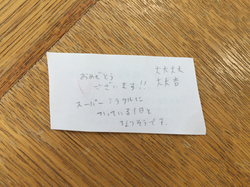 おめでとう
ございます!!
スーパーミラクルに
ついている1日と
なりそうです。
大大大大
大大吉